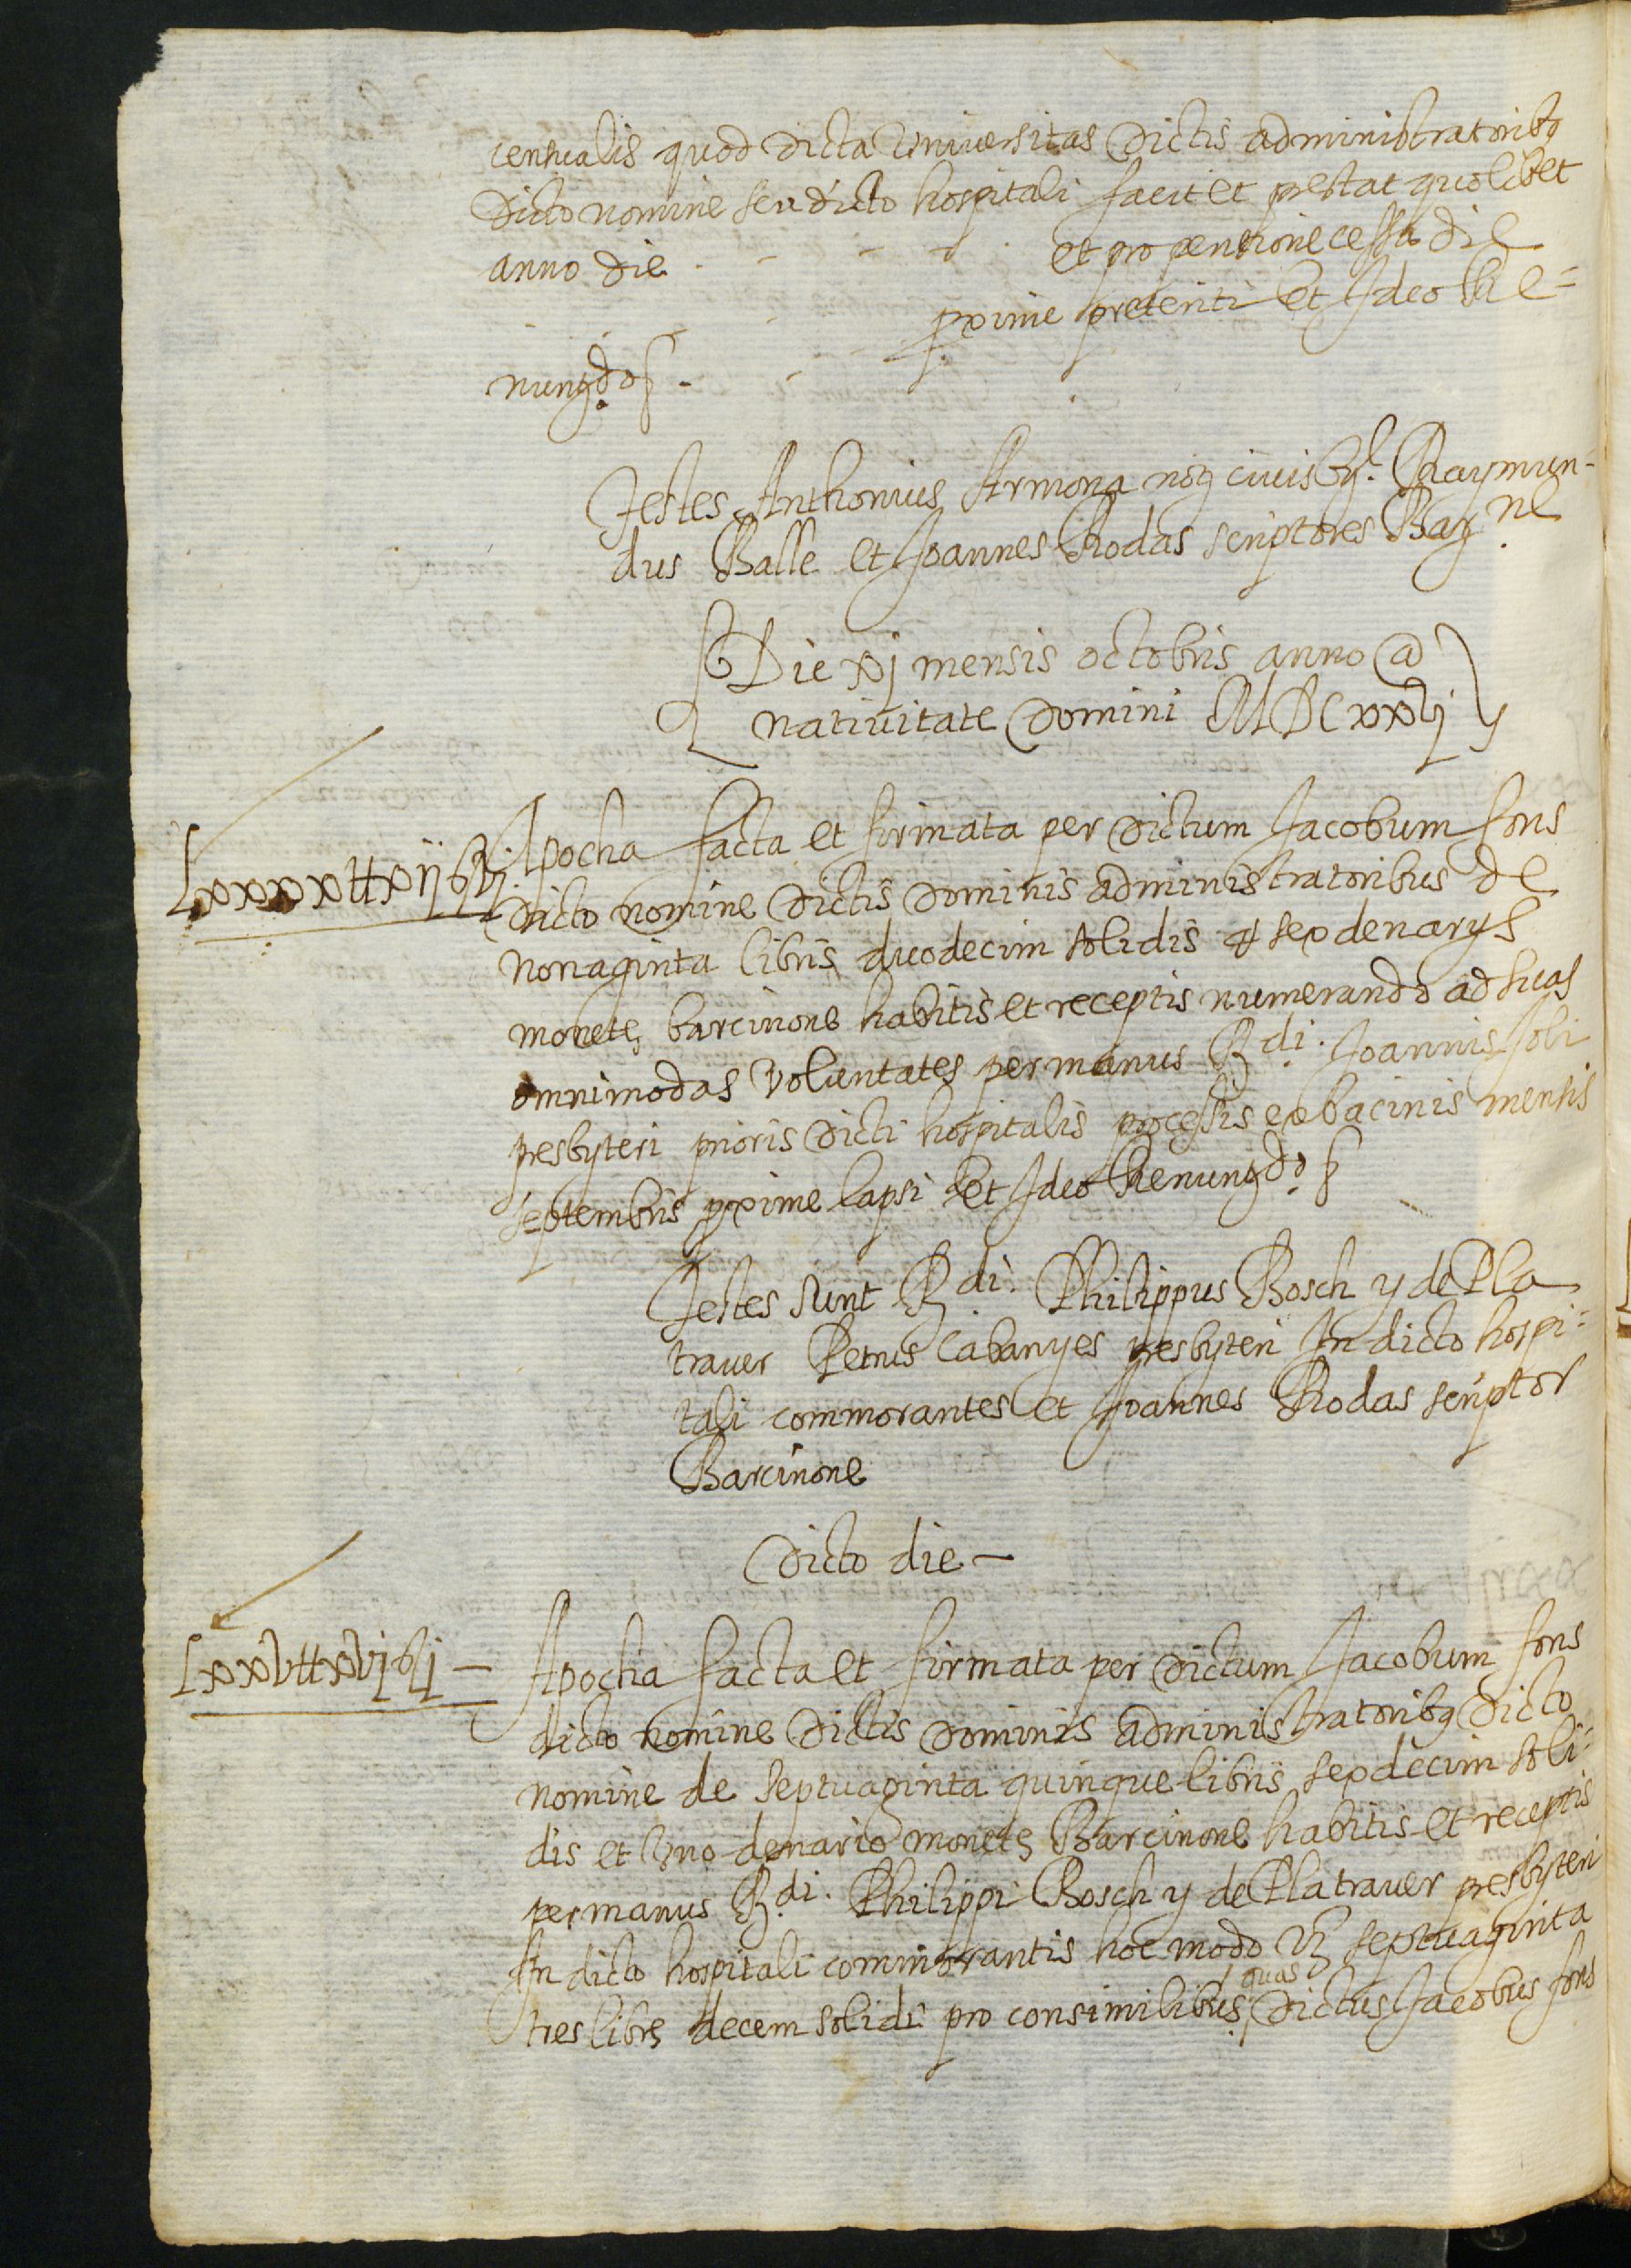 censualis quod dicta Universitas dictis administratoribꝰ
dicto nomine seu dicto hospitali facit et prestat quolibet
anno die - - - - et pro pentione cessa die
proxime preteriti et Ideo Re=
nungdo s -
Testes Anthonius Armona noꝰ civis Bꝰ Raymun-
dus Balle et Joannes Rodas scriptores Barne
Die xj mensis octobris anno @
nativitate Domini MDCxxvj
Lxxxxttxijsvj
Apocha facta et firmata per dictum Jacobum fons
dicto nomine dictis dominis administratoribus de
nonaginta libris duodecim solidis et sex denarys
monetę barcinone habitis et receptis numerando ad suas
omnimodas voluntates per manus Rdi. Joannis Joli
presbyteri prioris dicti hospitalis processis ex bacinis mensis
septembris proxime lapsi et Ideo Renungdo s
Testes sunt Rdi. Philippus Bosch y de Pla
traver Petrus Cabanyes presbyteri In dicto hospi=
tali commorantes et Joannes Rodas scriptor
Barcinone
Dicto die -
Lxxvttxvjsj -
Apocha facta et firmata per dictum Jacobum fons
dicto nomine dictis dominis administratoribꝰ dicto
nomine de septuaginta quinque libris sexdecim soli=
dis et Uno denario monetę Barcinone habitis et receptis
per manus Rdi. Philippi Bosch y de Platraver presbyteri
In dicto hospitali commorantis hoc modo Vz septuaginta
tres librę decem solidi pro consimilibus quas dictus Jacobus fons